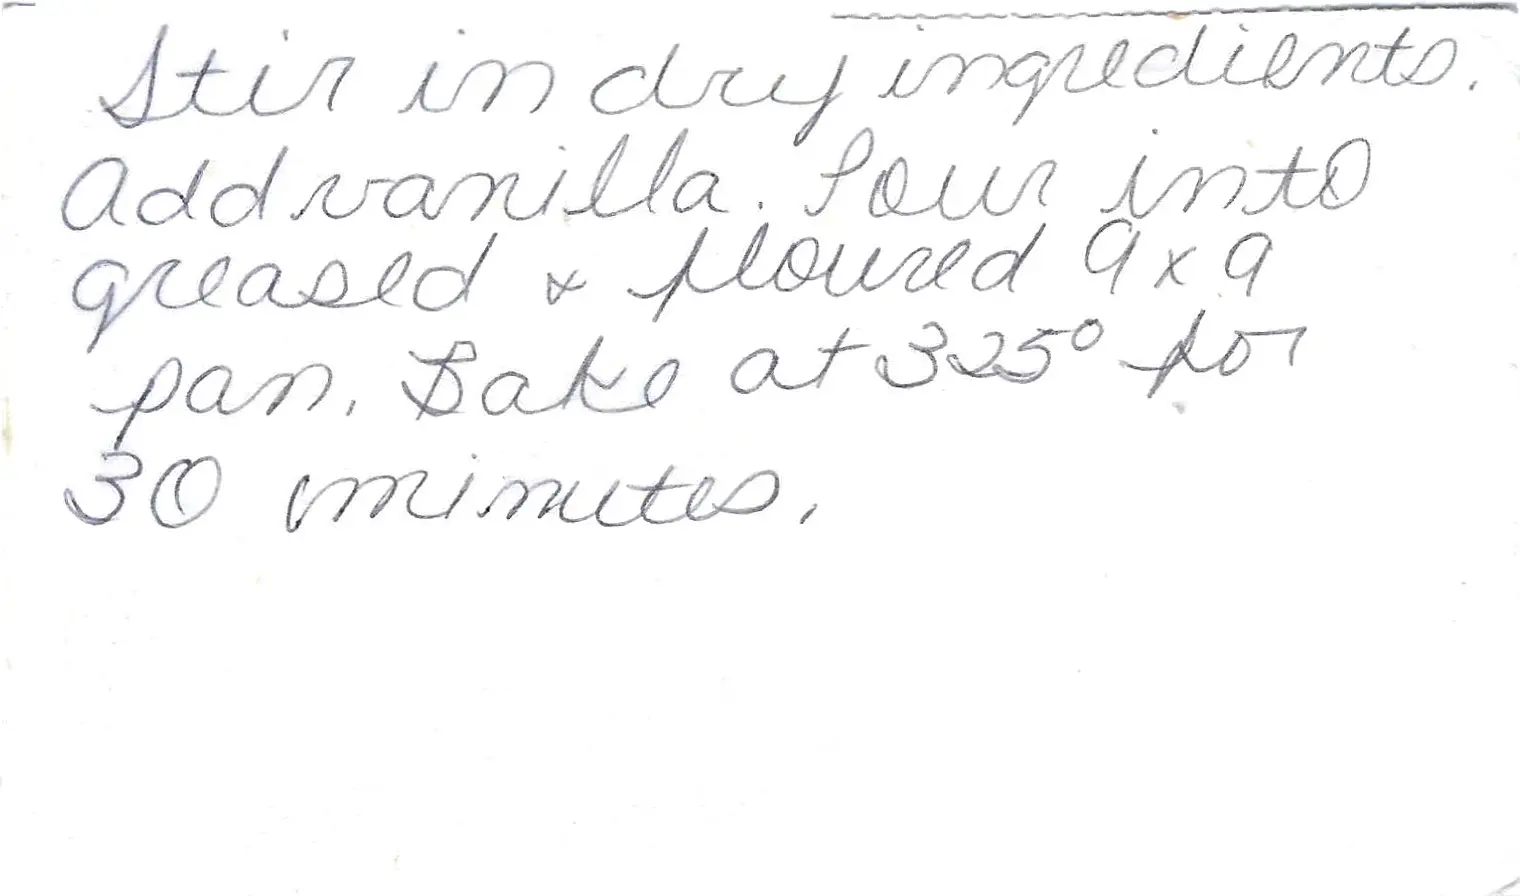 Stir in dry ingredients.
Add vanilla. Pour into
greased & floured 9x9
pan. Bake at 325° for
30 minutes.